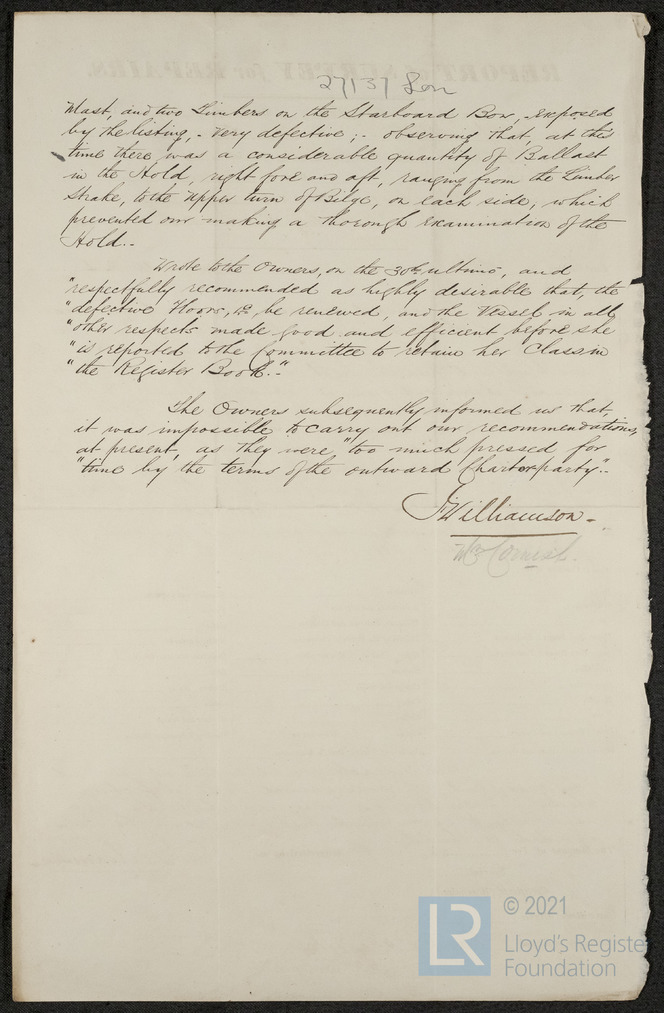 27137 Lon
Mast, and two Timbers on the Starboard Bow, - exposed
by the listing, - very defective; - observing that, at this
time there was a considerable quantity of Ballast
in the Hold, right fore and aft, ranging from the Limber
Strake, to the upper turn of Bilge, on each side, which
prevented our making a thorough examination of the
Hold. -
Wrote to the Owners, on the 30th ultimo, and
"respectfully recommended as highly desirable that, the
"defective Floors, &c be renewed, and the Vessel in all
"other respects made good and efficient before she
"is reported to the Committee to retain her Class in
"the Register Book." -
The Owners subsequently informed us that,
it was impossible to carry out our recommendations,
at present, as they were "too much pressed for
"time by the terms of the outward Charterparty". -
J. Williamson -
Wm Cornish.
LR © 2021
Lloyd's Registe
Foundation